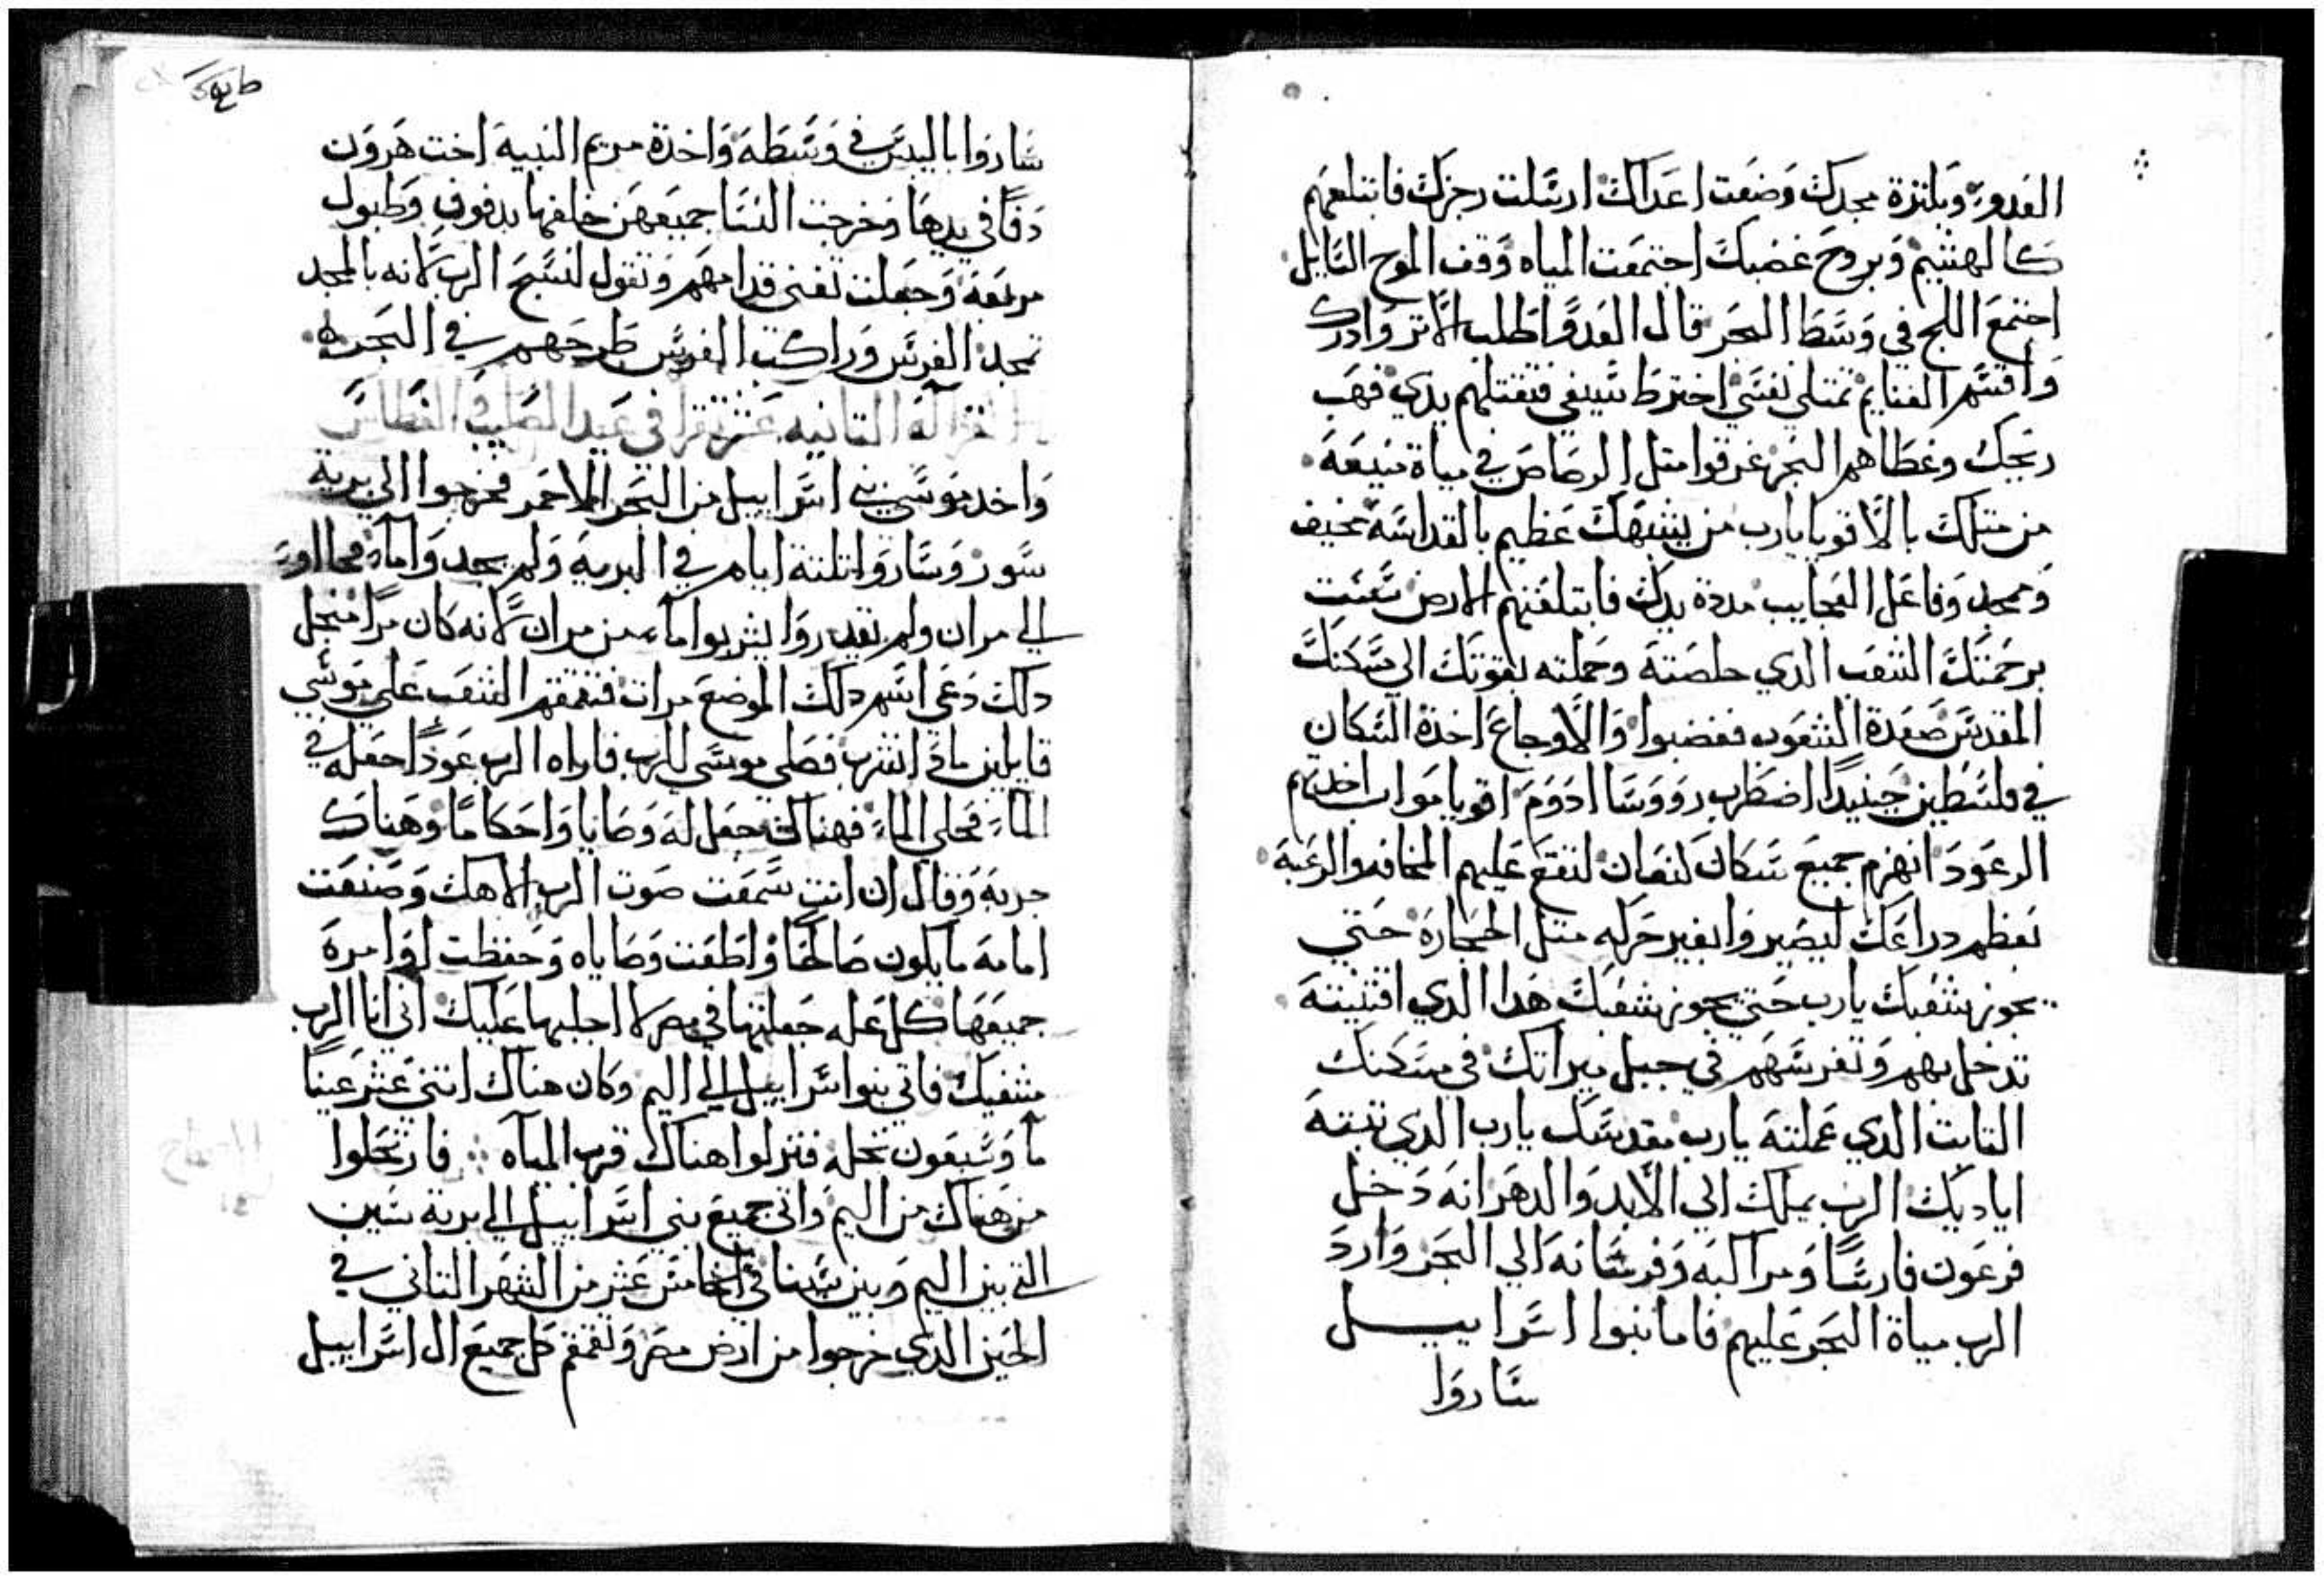 العدو وبكترة مجدك وضعت اعداك ارسلت رجزك فابتلعهم
كالهشيم وبروح غضبك اجتمعت المياه وقف الموج السايل
اجتمع اللج في وسط البحر قال العدو اطلب الاتر وادرك
واقسم الغنايم تمتلي نفسي اخترط سيفي فتقتلهم يدي فهب
ريحك وغطاهم البحر غرقوا متل الرصاص في مياة منيعة
من متلك بالاقويا يارب من يشبهك عظيم بالقداسة مخيف
وممجد وفاعل العجايب مددة يدك فابتلعتهم الارض
برحمتك الشعب الدي خلصته وحملته بقوتك الي مسكنك
المقدس صعدة الشعوب فغضبوا والاوجاع اخدة السكان
في فلسطين حينيدا اضطرب رووسا ادوم اقويا مواب اخدتهم
الرعود انهزم جميع سكان كنعان لتقع عليهم المخافه والرعبة
بعظم دراعك ليصيروا بغير حركه متل الحجارة حتي
يجوز شعبك يارب حتي يجوز شعبك هدا الدي اقتنيته
تدخل بهم وتغرسهم في جبل ميراتك في مسكنك
التابت الدي عملته يارب مقدسك يارب الدي تبته
اياديك الرب يملك الي الابد والدهر انه دخل
فرعون فارسا ومراكبه وفرسانه الي البحر وارد
الرب مياة البحر عليهم فاما بنوا اسراييل
ساروا
ساروا باليبس في وسطه واخدة مريم النبية اخت هرون
دفا في يدها وخرجت النسا جميعهن خلفها بدفوف وطبول
مربعة وجعلت تغني قدامهم وتقول لنسبح الرب لانه بالمجد
تمجد الفرس وراكب الفرس طرحهم في البحر
القراة التانيه عشر تقرا في عيد الصليب الغطاس
واخد موسي بني اسراييل من البحر الاحمر فخرجوا الي برية
سور وساروا تلتة ايام في البرية ولم يجدوا ماء فجااو
الي مران ولم يقدروا يشربوا ماء من مران لانه كان مرا فمنجل
دلك دعي اسم دلك الموضع مرات فتقمقم الشعب علي موسي
قايلين مادا نشرب فصلي موسي للرب فاراه الرب عودا جعله في
الماء فحلي الماء فهناك جعل له وصايا واحكاما وهناك
جربه وقال ان انت سمعت صوت الرب الاهك وصنعت
امامه ما يكون صالحا واطعت وصاياه وحفظت اوامرة
جميعها كل عله جعلتها في مصر لا اجلبها عليك اني انا الرب
مشفيك فاتي بنوا اسراييل الي اليم وكان هناك اتني عشر عينا
ما وسبعون نخله فنزلوا هناك قرب المياه فارتحلوا
من هناك من اليم واتي جميع بني اسراييل الي برية سين
التي بين اليم وبين سينا في الخامس عشر من الشهر التاني في
الحين الدي خرجوا من ارض مصر وتقمقم كل جميع ال اسراييل